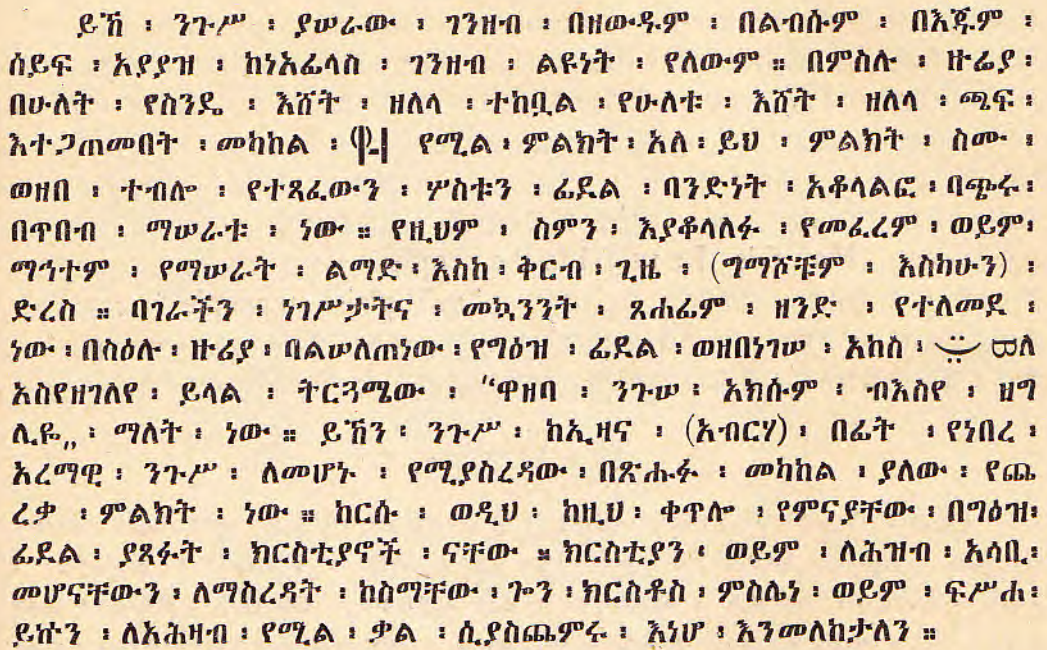 ይኸ ፡ ንጉሥ ፡ ያሠራው ፡ ገንዘብ ፡ በዘውዱም ፡ በልብሱም ፡ በእጁም ፡
ሰይፍ ፡ አያያዝ ፡ ከነአፊላስ ፡ ገንዘብ ፡ ልዩነት ፡ የለውም ። በምስሉ ፡ ዙሬያ ፡
በሁለት ፡ የስንዴ ፡ እሸት ፡ ዘለላ ፡ ተከቧል ፡ የሁለቱ ፡ እሸት ፡ ዘለላ ፡ ጫፍ ፡
እተጋጠመበት ፡ መካከል ፡ የሚል ፡ ምልክት ፡ አለ ፡ ይህ ፡ ምልክት ፡ ስሙ ፡
ወዘበ ፡ ተብሎ ፡ የተጻፈውን ፡ ሦስቱን ፡ ፊደል ፡ ባንድነት ፡ አቆላልፎ ፡ በጭሩ ፡
በጥበብ ፡ ማሠራቱ ፡ ነው ። የዚህም ፡ ስምን ፡ እያቆላለፉ ፡ የመፈረም ፡ ወይም ፡
ማኅተም ፡ የማሠራት ፡ ልማድ ፡ እስከ ፡ ቅርብ ፡ ጊዜ ፡ (ግማሾቹም ፡ እስካሁን) ፡
ድረስ ። ባገራችን ፡ ነገሥታትና ፡ መኳንንት ፡ ጸሐፊም ፡ ዘንድ ፡ የተለመደ ፡
ነው ፡ በስዕሉ ፡ ዙሪያ ፡ ባልሠለጠነው ፡ የግዕዝ ፡ ፊደል ፡ ወዘበነገሠ ፡ አከሰ ፡ ለ
አስየዘገለየ ፡ ይላል ፡ ትርጓሜው ፡ “ዋዘባ ፡ ንጉሠ ፡ አክሱም ፡ ብእስየ ፡ ዘግ
ሊዬ„ ፡ ማለት ፡ ነው ። ይኸን ፡ ንጉሥ ፡ ከኢዛና ፡ (አብርሃ) ፡ በፊት ፡ የነበረ ፡
አረማዊ ፡ ንጉሥ ፡ ለመሆኑ ፡ የሚያስረዳው ፡ በጽሑፉ ፡ መካከል ፡ ያለው ፡ የጨ
ረቃ ፡ ምልክት ፡ ነው ። ከርሱ ፡ ወዲህ ፡ ከዚህ ፡ ቀጥሎ ፡ የምናያቸው ፡ በግዕዝ ፡
ፊደል ፡ ያጻፉት ፡ ክርስቲያኖች ፡ ናቸው ። ክርስቲያን ፡ ወይም ፡ ለሕዝብ ፡ አሳቢ ፡
መሆናቸውን ፡ ለማስረዳት ፡ ከስማቸው ፡ ጐን ፡ ክርስቶስ ፡ ምስሌነ ፡ ወይም ፡ ፍሥሐ ፡
ይኩን ፡ ለአሕዛብ ፡ የሚል ፡ ቃል ፡ ሲያስጨምሩ ፡ እነሆ ፡ እንመለከታለን ።